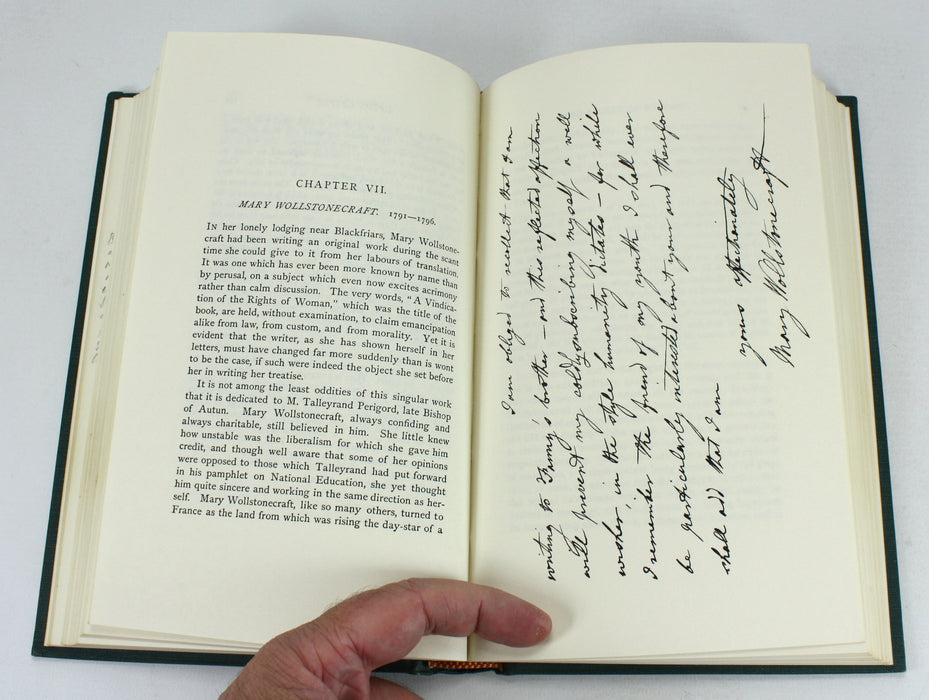 CHAPTER VII.
MARY WOLLSTONECRAFT. 1791—1796.
IN her lonely lodging near Blackfriars, Mary Wollstone-
craft had been writing an original work during the scant
time she could give to it from her labours of translation.
It was one which has ever been more known by name than
by perusal, on a subject which even now excites acrimony
rather than calm discussion. The very words, “A Vindica-
tion of the Rights of Woman,” which was the title of the
book, are held, without examination, to claim emancipation
alike from law, from custom, and from morality. Yet it is
evident that the writer, as she has shown herself in her
letters, must have changed far more suddenly than is wont
to be the case, if such were indeed the object she set before
her in writing her treatise.
It is not among the least oddities of this singular work
that it is dedicated to M. Talleyrand Perigord, late Bishop
of Autun. Mary Wollstonecraft, always confiding and
always charitable, still believed in him. She little knew
how unstable was the liberalism for which she gave him
credit, and though well aware that some of her opinions
were opposed to those which Talleyrand had put forward
in his pamphlet on National Education, she yet thought
him quite sincere and working in the same direction as her-
self. Mary Wollstonecraft, like so many others, turned to
France as the land from which was rising the day-star of a
I am obliged to recollect that I am
writing to Fanny's brother – and this reflected affection
will prevent my coldly subscribing myself a well
wisher, in the style humanity dictates – for while
I remember the friend of my youth I shall ever
be particularly interested about yours and therefore
shall add that I am
yours affectionately
Mary Wollstonecraft